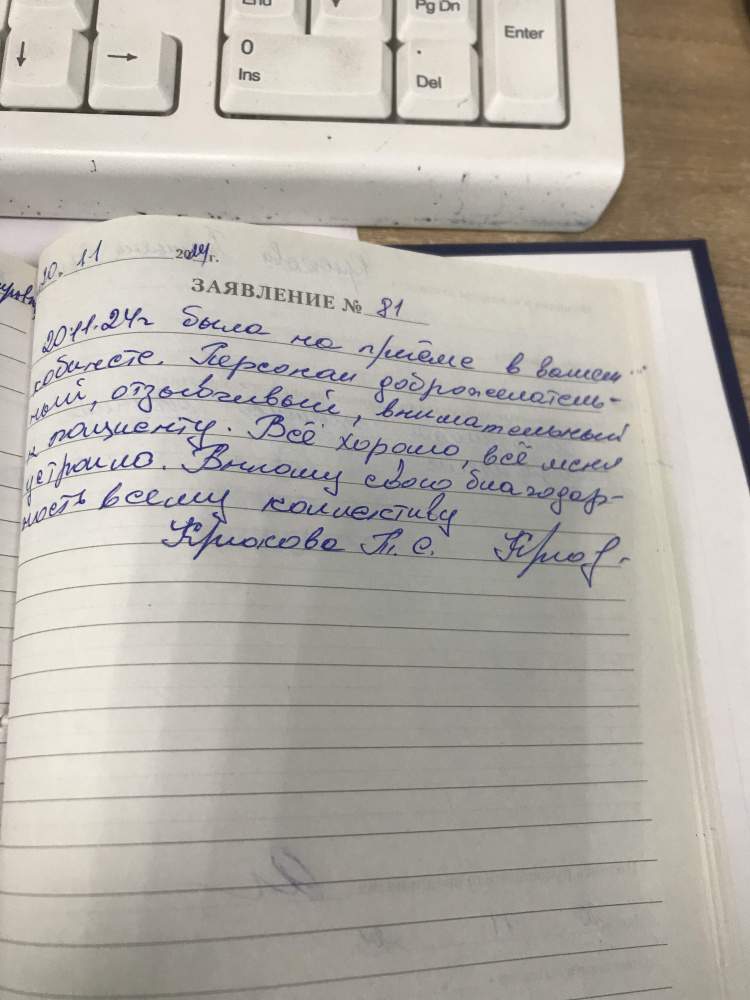 End
Pg Dn
Enter
0
Ins
.
Del
20. 11 2024 г.
ЗАЯВЛЕНИЕ № 81
20.11.24г была на приёме в вашем
кабинете. Персонал доброжелатель-
ный, отзывчивый, внимательный
к пациенту. Всё хорошо, всё меня
устроило. Выношу свою благодар-
ность всему коллективу
Крюкова Т. С.